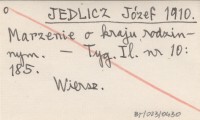 JEDLICZ Józef 1910.
Marzenie o kraju rodzin-
nym. — Tyg. Il. nr 10:
185.
Wiersz.